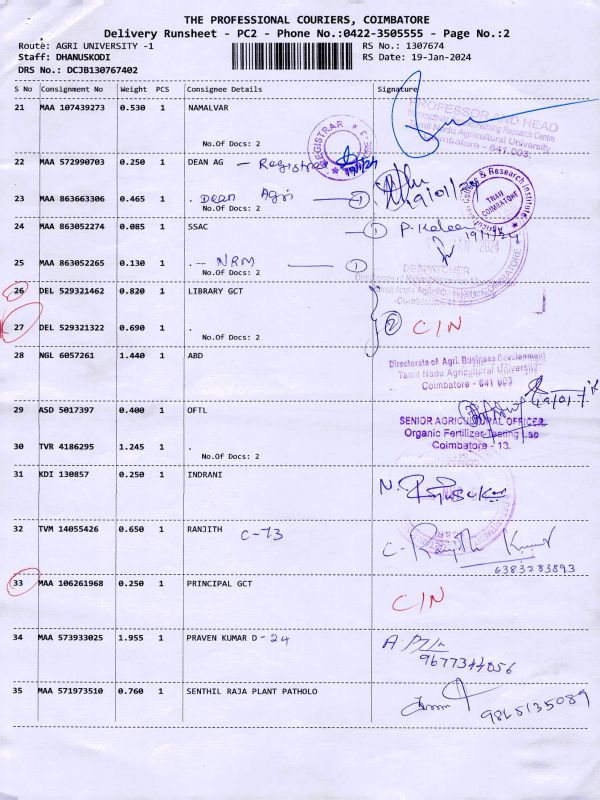 THE PROFESSIONAL COURIERS, COIMBATORE
Delivery Runsheet - PC2 - Phone No.:0422-3505555 - Page No.:2
Route: AGRI UNIVERSITY -1 RS No.: 1307674
Staff: DHANUSKODI RS Date: 19-Jan-2024
DRS No.: DCJB130767402
S No Consignment No Weight PCS Consignee Details Signature
21 MAA 107439273 0.530 1 NAMALVAR
PROFESSOR AND HEAD
Tamil Nadu Agricultural University
Coimbatore - 641 003.
No.Of Docs: 2
REGISTRAR
22 MAA 572990703 0.250 1 DEAN AG - Registrar
19/1/24
23 MAA 863663306 0.465 1 . Dean Agri 1
No.Of Docs: 2
TNAU
COIMBATORE
24 MAA 863052274 0.085 1 SSAC 1
19/1/24
25 MAA 863052265 0.130 1 .- NRM 1
No.Of Docs: 2
DESPATCHER
26 DEL 529321462 0.820 1 LIBRARY GCT
27 DEL 529321322 0.690 1 . 2 C/N
No.Of Docs: 2
28 NGL 6057261 1.440 1 ABD
Directorate of Agri. Business Development
Tamil Nadu Agricultural University
Coimbatore - 641 003
29 ASD 5017397 0.400 1 OFTL
SENIOR AGRICULTURAL OFFICER
Organic Fertilizer Testing Lab
Coimbatore - 13.
30 TVR 4186295 1.245 1 .
No.Of Docs: 2
31 KDI 130857 0.250 1 INDRANI
32 TVM 14055426 0.650 1 RANJITH C-73
C. Ranjith Kumar
6383283893
33 MAA 106261968 0.250 1 PRINCIPAL GCT C/N
34 MAA 573933025 1.955 1 PRAVEN KUMAR D - 24
9677344056
35 MAA 571973510 0.760 1 SENTHIL RAJA PLANT PATHOLO
9865135089